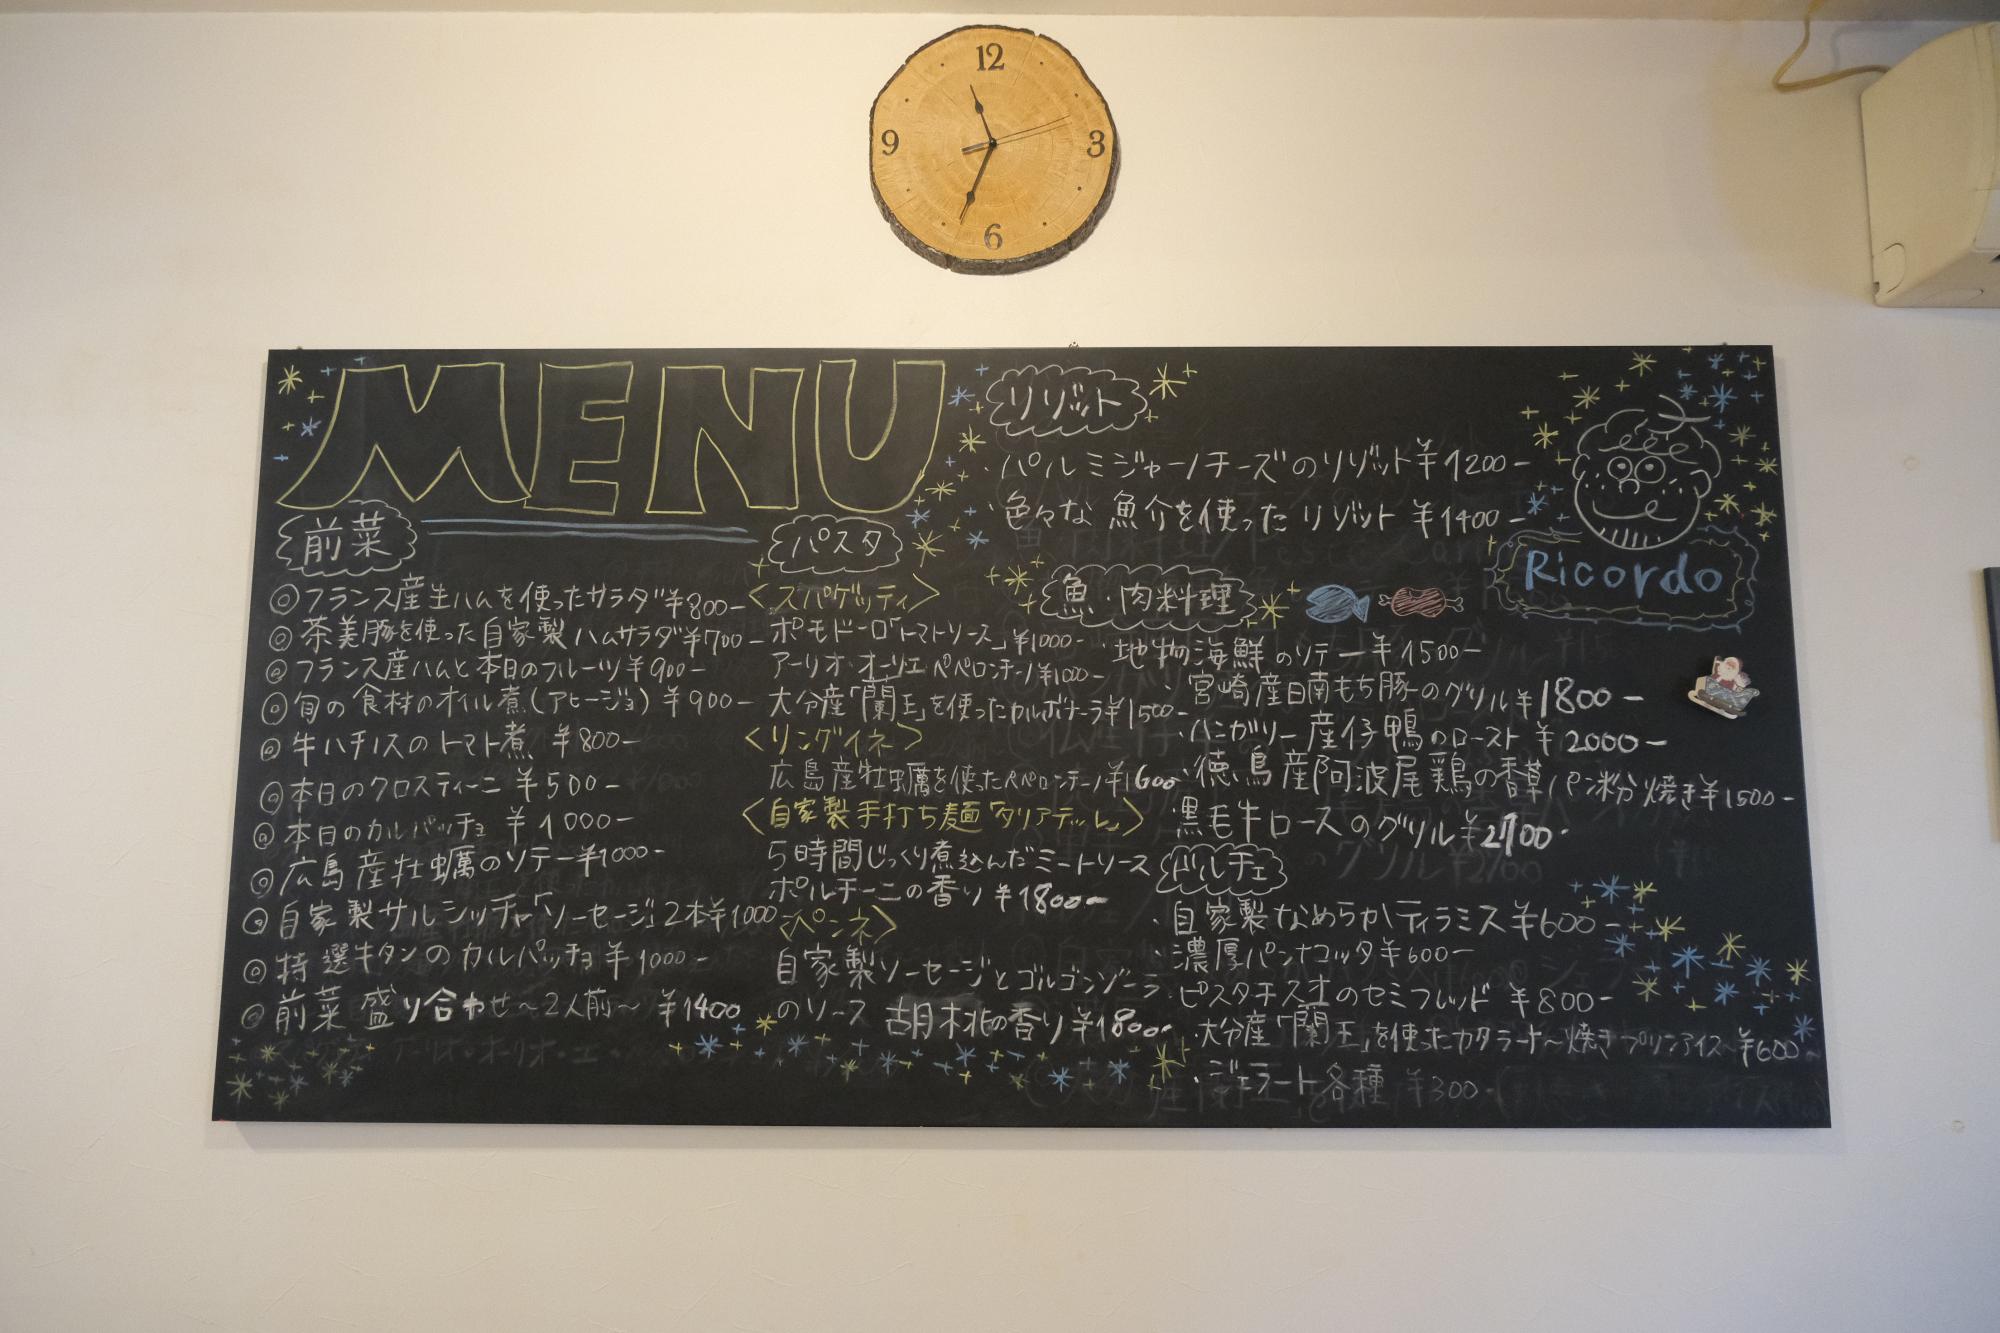 12
3
6
9
MENU
前菜
◎フランス産生ハムを使ったサラダ¥800-
◎茶美豚を使った自家製ハムサラダ¥700-
◎フランス産ハムと本日のフルーツ¥900-
◎旬の食材のオイル煮(アヒージョ)¥900-
◎牛ハチノスのトマト煮 ¥800-
◎本日のクロスティーニ¥500-
◎本日のカルパッチョ ¥1000-
◎広島産牡蠣のソテー¥1000-
◎自家製サルシッチャ「ソーセージ」2本¥1000-
◎特選牛タンのカルパッチョ¥1000-
◎前菜盛り合わせ~2人前~ ¥1400
パスタ
<スパゲッティ>
ポモドーロ「トマトソース」¥1000-
アーリオ・オーリエ ペペロンチーノ¥1000-
大分産「蘭王」を使ったカルボナーラ¥1500-
<リングイネ>
広島産牡蠣を使ったペペロンチーノ¥1600-
<自家製手打ち麺「タリアテッレ」>
5時間じっくり煮込んだミートソース
ポルチーニの香り ¥1800-
<ペンネ>
自家製ソーセージとゴルゴンゾーラ
のソース 胡桃の香り¥1800-
リゾット
・パルミジャーノチーズのリゾット¥1200-
・色々な魚介を使ったリゾット ¥1400-
Ricordo
魚・肉料理
・地物海鮮のソテー¥1500-
・宮崎産日南もち豚のグリル¥1800-
・ハンガリー産仔鴨のロースト ¥2000-
・徳島産阿波尾鶏の香草パン粉焼き¥1500-
黒毛牛ロースのグリル¥2700-
ドルチェ
・自家製なめらかティラミス¥600-
・濃厚パンナコッタ¥600-
・ピスタチオのセミフレッド ¥800-
・大分産「蘭王」を使ったカタラーナ~焼きプリンアイス~¥600-
・ジェラート各種 ¥300-